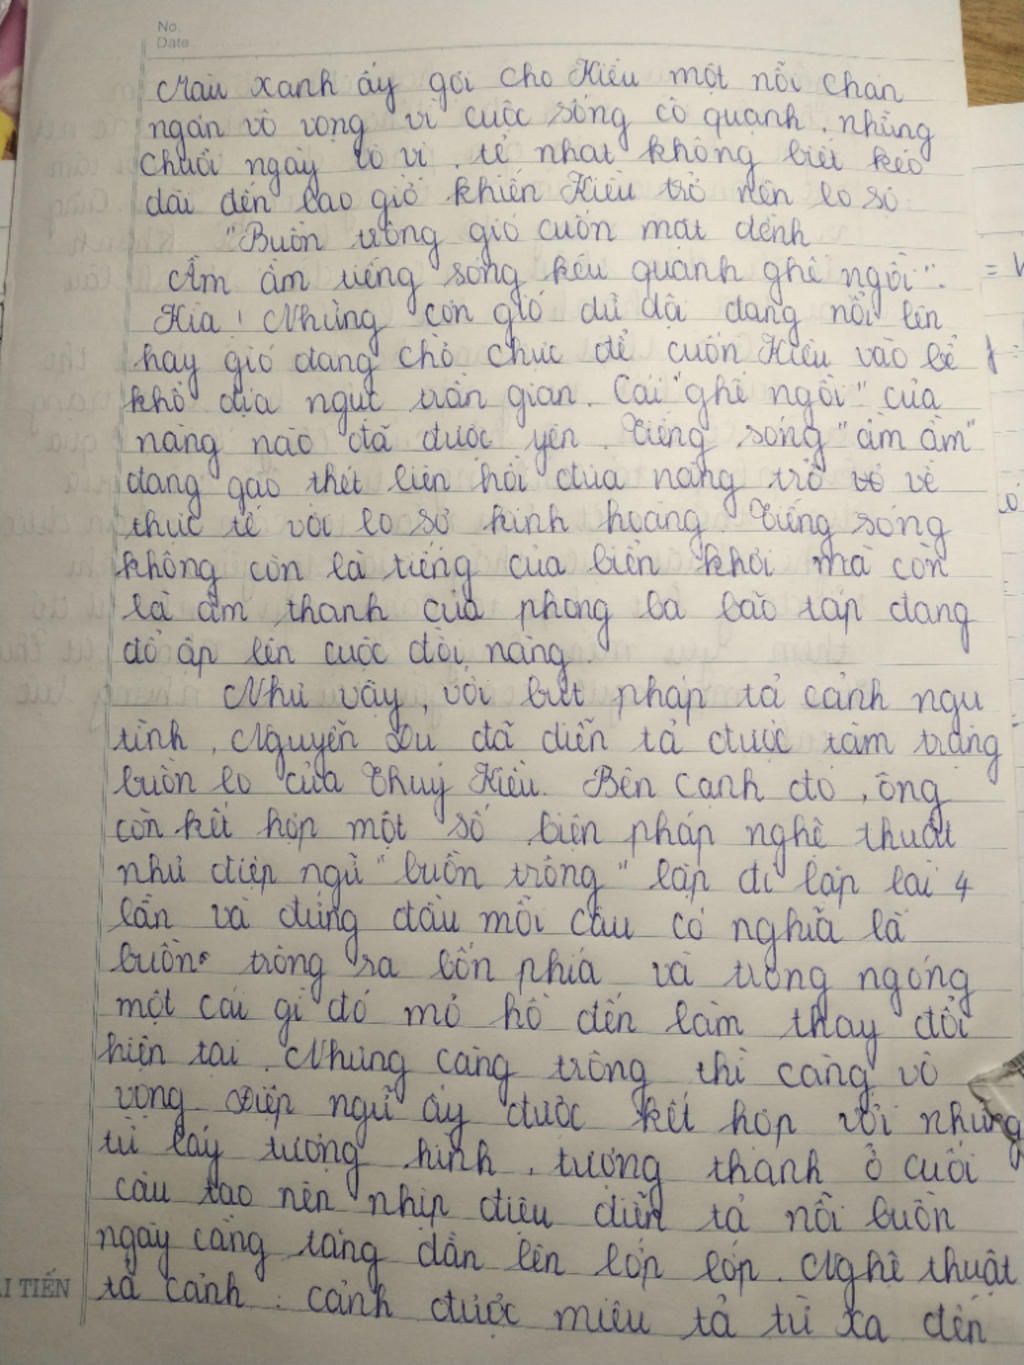 No.
Date
Màu xanh ấy gợi cho Kiều một nỗi chán
ngán vô vọng vì cuộc sống cô quạnh, những
chuỗi ngày vô vị, tẻ nhạt không biết kéo
dài đến bao giờ khiến Kiều trở nên lo sợ
"Buồn trông gió cuốn mặt duềnh
Ầm ầm tiếng sóng kêu quanh ghế ngồi".
Kìa! Những cơn gió dữ dội đang nổi lên
hay gió đang chờ chực để cuốn Kiều vào bể
khổ địa ngục trần gian. Cái "ghế ngồi" của
nàng nào đã được yên. Tiếng sóng "ầm ầm"
đang gào thét liên hồi đưa nàng trở về
thực tế với lo sợ kinh hoàng. Tiếng sóng
không còn là tiếng của biển khơi mà còn
là âm thanh của phong ba bão táp đang
đổ ập lên cuộc đời nàng.
Như vậy, với bút pháp tả cảnh ngụ
tình, Nguyễn Du đã diễn tả được tâm trạng
buồn lo của Thuý Kiều. Bên cạnh đó, ông
còn kết hợp một số biện pháp nghệ thuật
như điệp ngữ "buồn trông" lặp đi lặp lại 4
lần và đứng đầu mỗi câu có nghĩa là
buồn trông ra bốn phía và trông ngóng
một cái gì đó mơ hồ đến làm thay đổi
hiện tại. Nhưng càng trông thì càng vô
vọng. Điệp ngữ ấy được kết hợp với những
từ láy tượng hình, tượng thanh ở cuối
câu tạo nên nhịp điệu diễn tả nỗi buồn
ngày càng tăng dần lên lớp lớp. Nghệ thuật
tả cảnh: cảnh được miêu tả từ xa đến
TIẾN